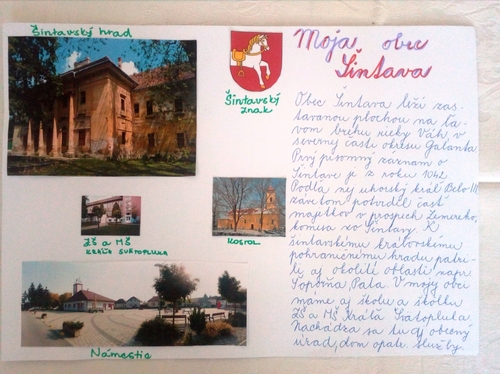 Šintavský hrad
Moja obec
Šintava
Šintavský
znak
Obec Šintava leží zas-
tavanou plochou na ľa-
vom brehu rieky Váh, v
severnej časti okresu Galanta.
Prvý písomný záznam o
Šintave je z roku 1042.
Podľa nej uhorský kráľ Belo III
závetom potvrdil časť
majetkov v prospech
komisa zo Šintavy. K
šintavskému kráľovskému
pohraničnému hradu patri-
li aj okolité oblasti napr.
Soporňa, Pata. V mojej obci
máme aj školu a škôlku
ZŠ a MŠ Kráľa Svätopluka.
Nachádza sa tu aj obecný
úrad, dom opatr. služby.
ZŠ a MŠ
KRÁĽA SVÄTOPLUKA
Kostol
Námestie